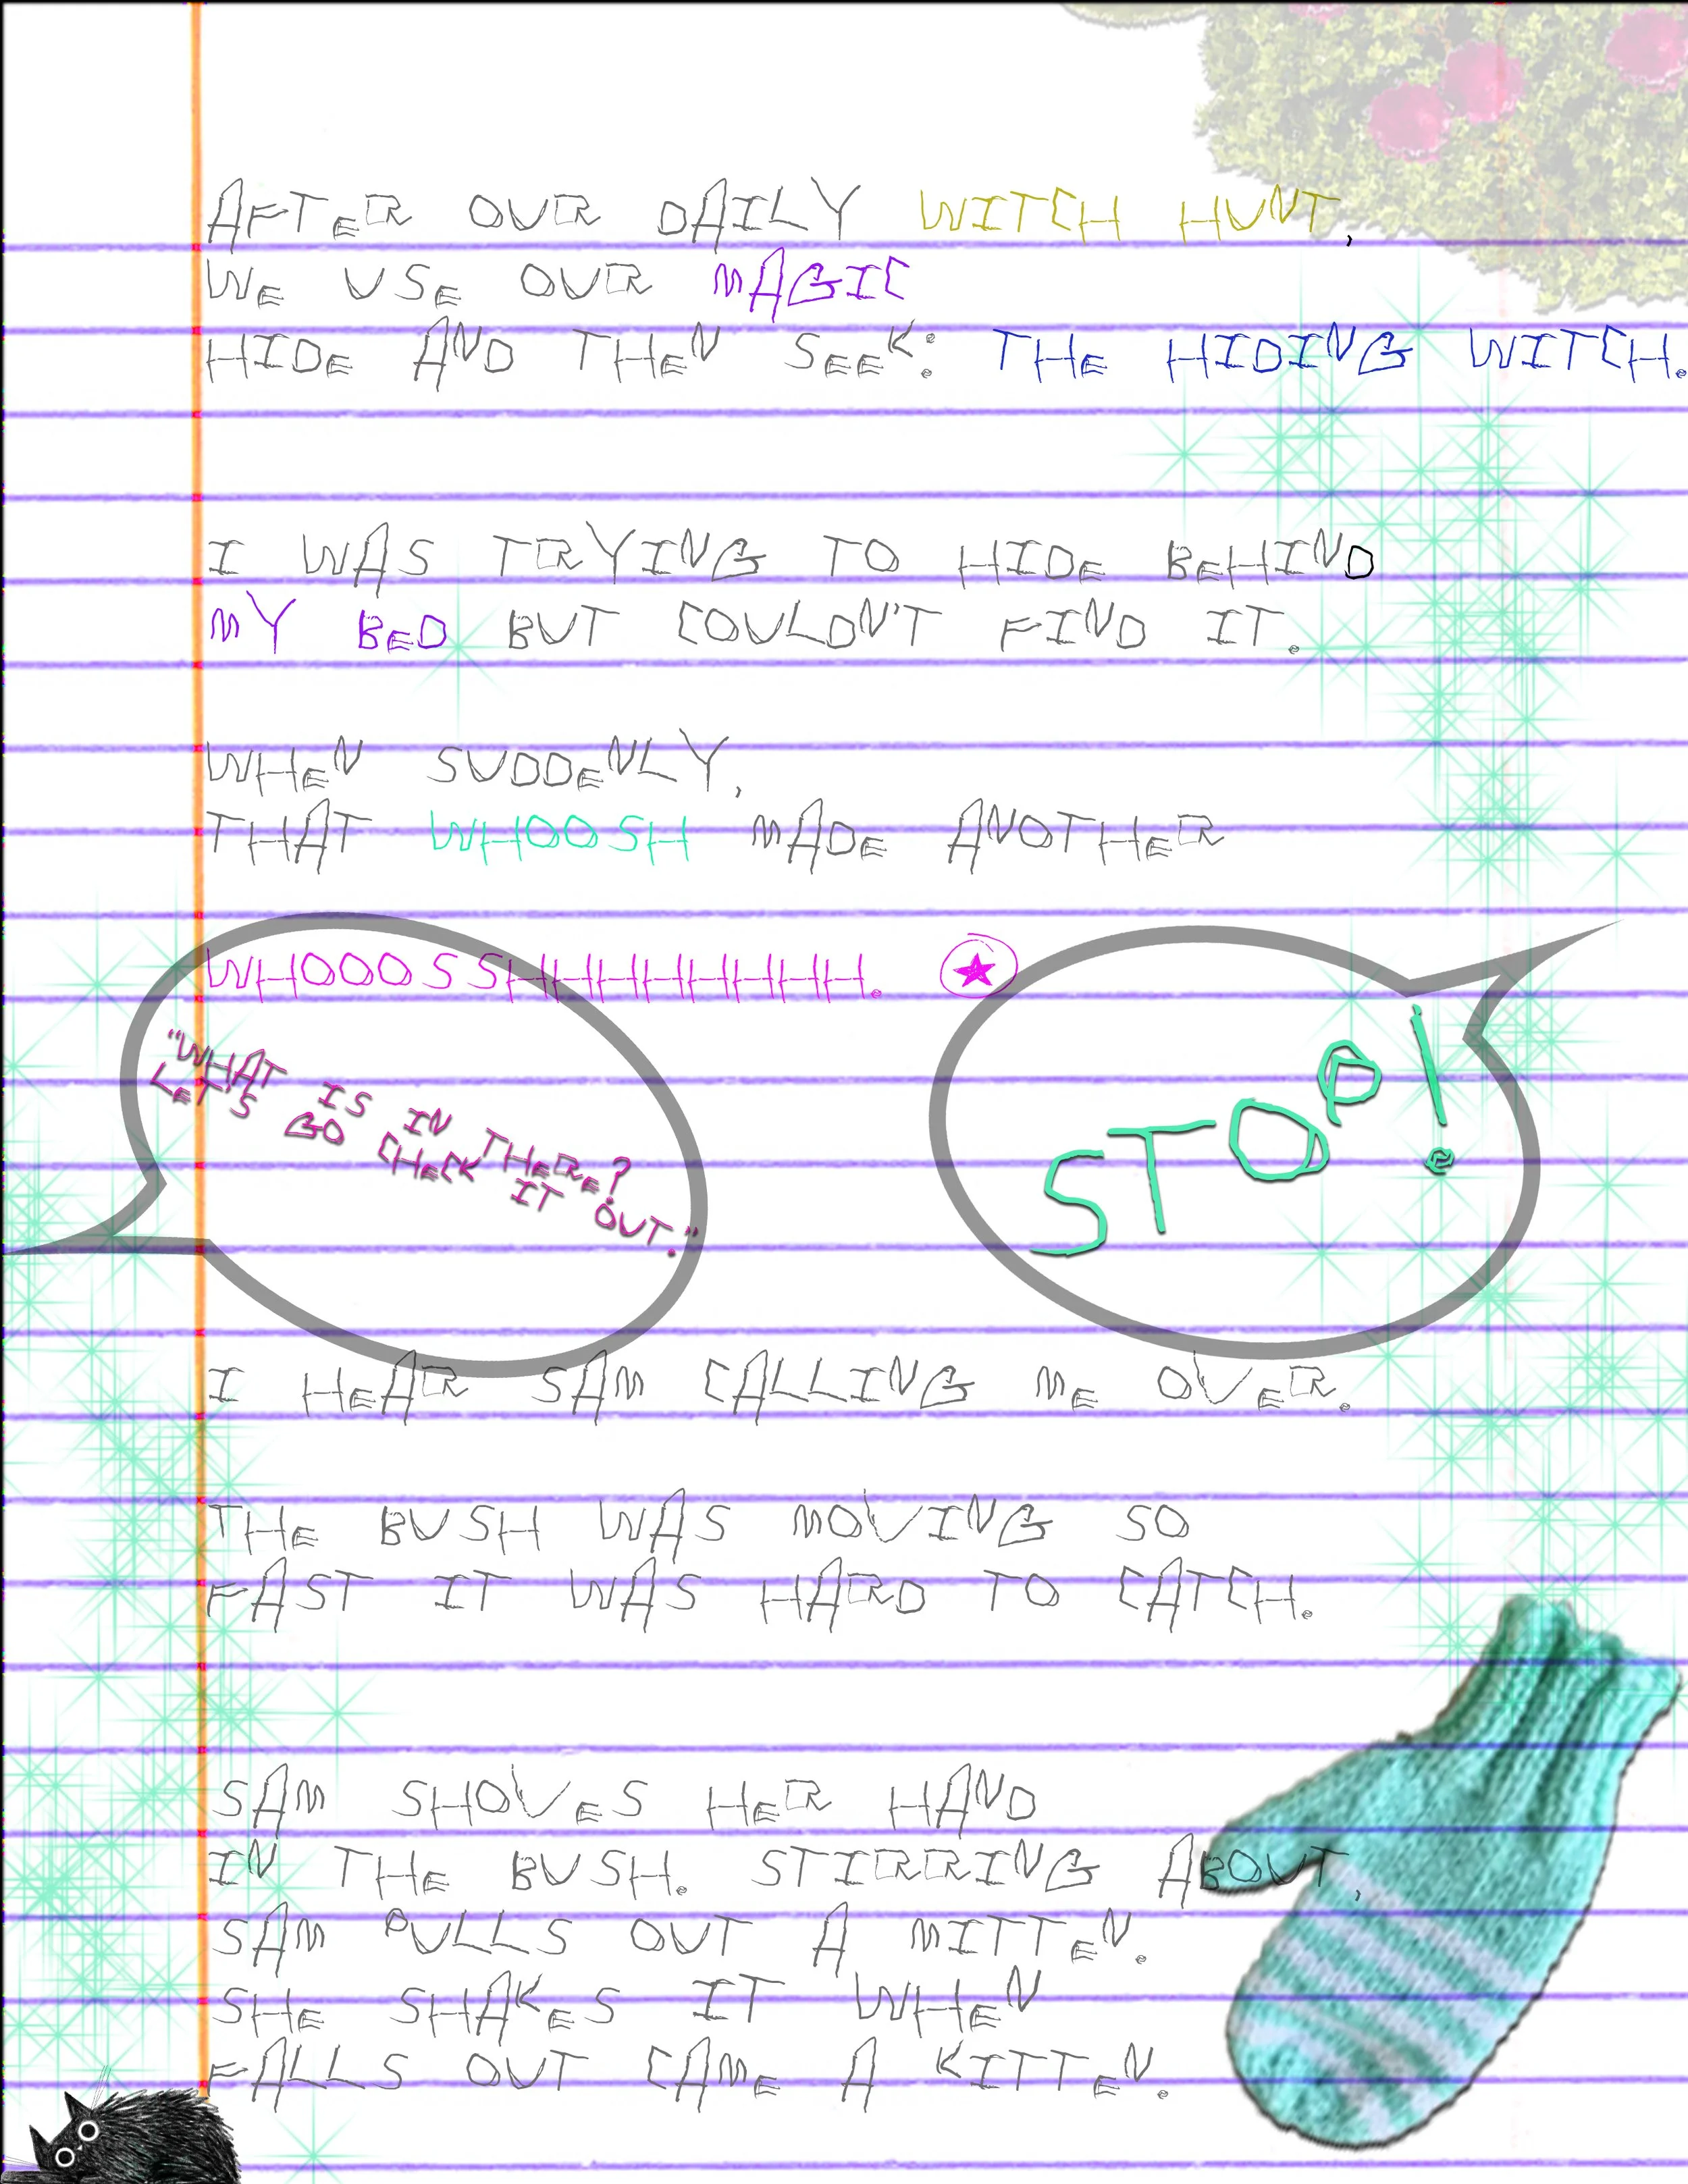 AFTER OUR DAILY WITCH HUNT,
WE USE OUR MAGIC
HIDE AND THEN SEEK: THE HIDING WITCH.
I WAS TRYING TO HIDE BEHIND
MY BED BUT COULDN'T FIND IT.
WHEN SUDDENLY,
THAT WHOOSH MADE ANOTHER
WHOOOSSHHHHHHHH.
"WHAT IS IN THERE?
LET'S GO CHECK IT OUT."
STOP!
I HEAR SAM CALLING ME OVER.
THE BUSH WAS MOVING SO
FAST IT WAS HARD TO CATCH.
SAM SHOVES HER HAND
IN THE BUSH. STIRRING ABOUT,
SAM PULLS OUT A MITTEN.
SHE SHAKES IT WHEN
FALLS OUT CAME A KITTEN.